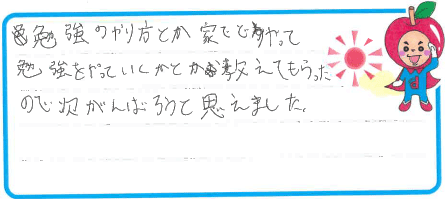 勉強のやり方とか家でどうやって
勉強をやっていくかとか教えてもらった
ので次がんばろうと思えました。